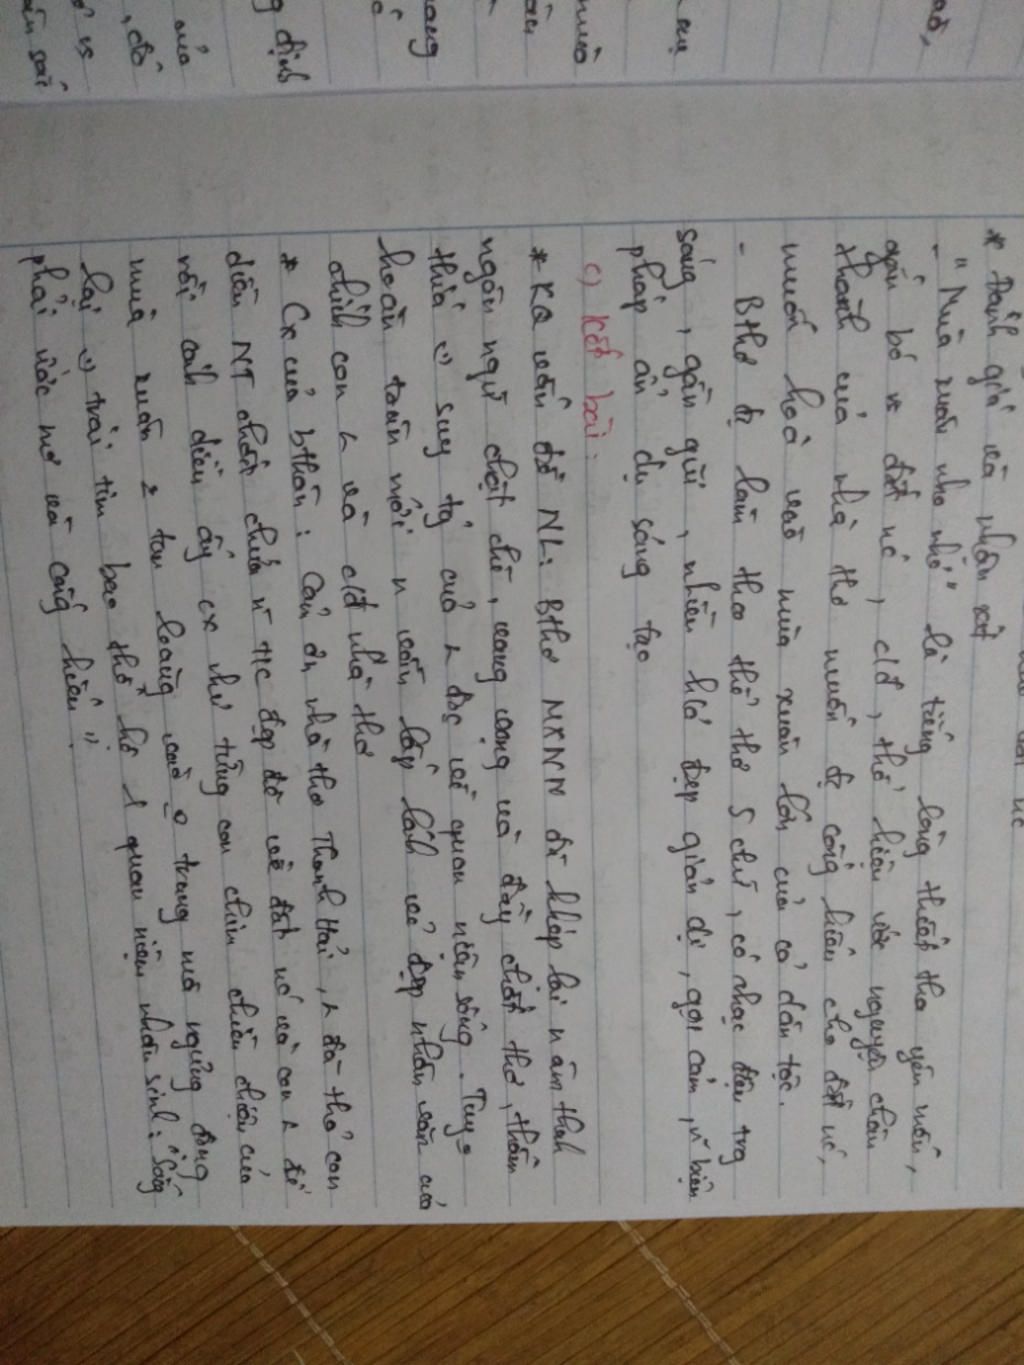 * Đánh giá và nhận xét
- "Mùa xuân nho nhỏ" là tiếng lòng thiết tha yêu mến,
gắn bó vs đất nc, clđ, thể hiện ước nguyện chân
thành của nhà thơ muốn đc cống hiến cho đất nc,
muốn hoà vào mùa xuân lớn của cả dân tộc.
- Bthơ đc làm theo thể thơ 5 chữ, có nhạc điệu trg
sáng, gần gũi, nhiều h/á đẹp giản dị, gợi cảm, n~ biện
pháp ẩn dụ sáng tạo
c) Kết bài:
* KQ vấn đề NL: Bthơ MXNN đã khép lại = âm thanh
ngôn ngữ chặt chẽ, vang vọng và đầy chất thơ, thấm
thía suy tg của đọc về quan niệm sống. Tuy
hoàn toàn mới n vẫn lấp lánh vẻ đẹp nhân văn của
chính con và clđ nhà thơ
* Cx của bthân: Cảm ơn nhà thơ Thanh Hải, đã thả con
diều NT chứa n~ t/c đẹp đẽ về đất nc và con để
rồi cánh diều ấy cx như từng con chim chiền chiện của
mùa xuân tan loãng vào trong mà ngưng đọng
lại trái tim bao thế hệ 1 quan niệm nhân sinh: "Sống
phải ước mơ và cống hiến".